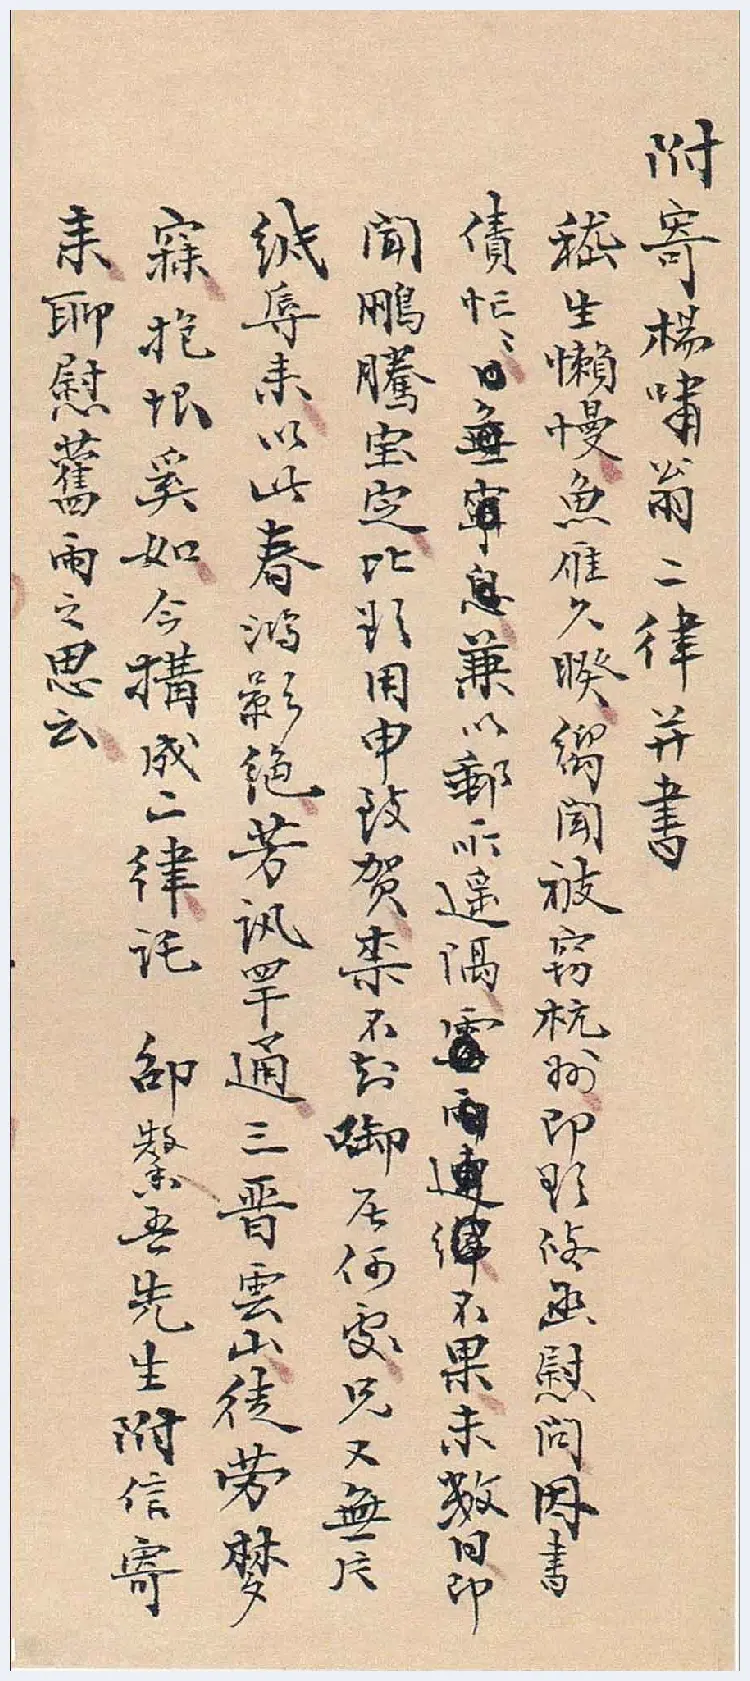 附寄楊嘯翁二律并書
嵇生懶慢魚雁久暌縐聞被竊杭州即欲修函慰問因書
債忙々日無寧息兼以郵所遥隔雲雨連綿不果未数日即
聞鵬騰宝定比欲用申致贺柰不知御居何處兄又無片
緘辱来以此春鴻影絶芳訊罕通三晋雲山徒劳梦
寐抱恨奚如今搆成二律託 邵榮吾先生附信寄
来聊慰舊雨之思云